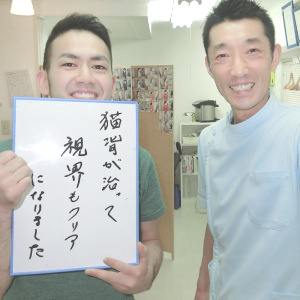 猫背が治って
視界もクリア
になりました